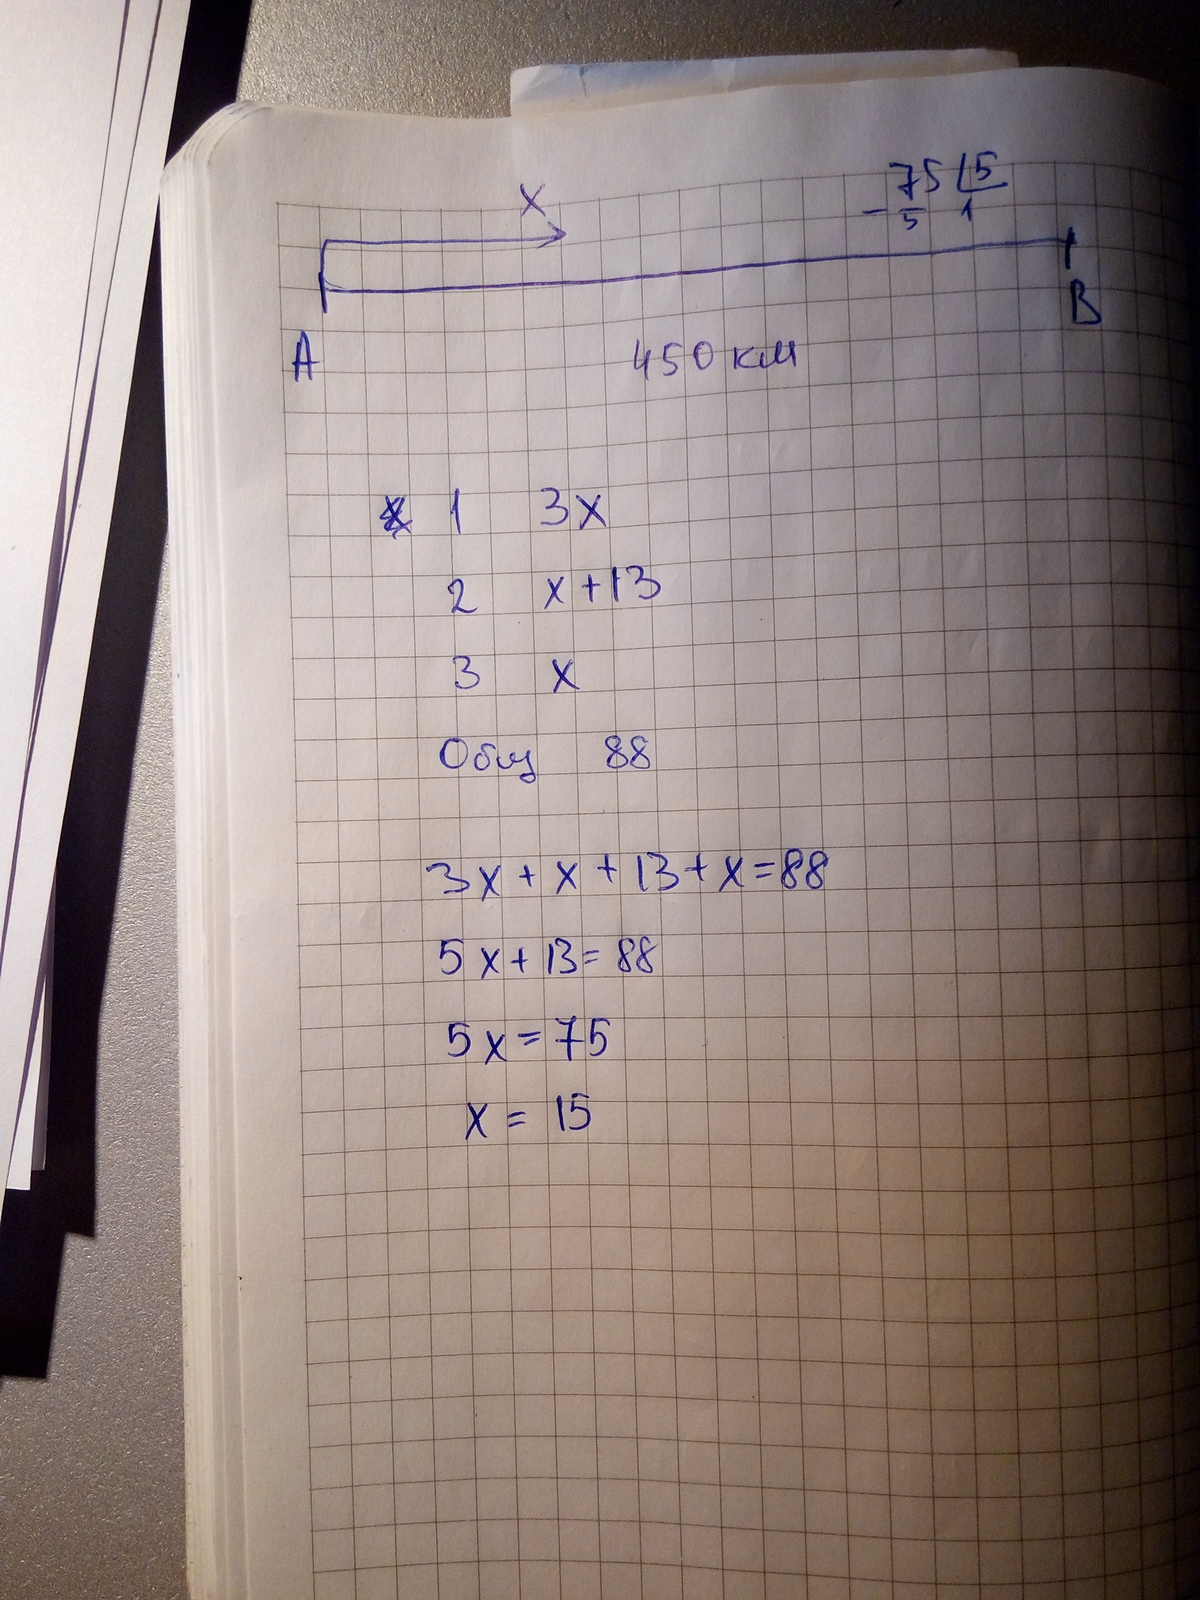 x
75 5
- 5 1
A
B
450 км
1 3x
2 x+13
3 x
Общ 88
3x + x + 13 + x = 88
5x + 13 = 88
5x = 75
x = 15